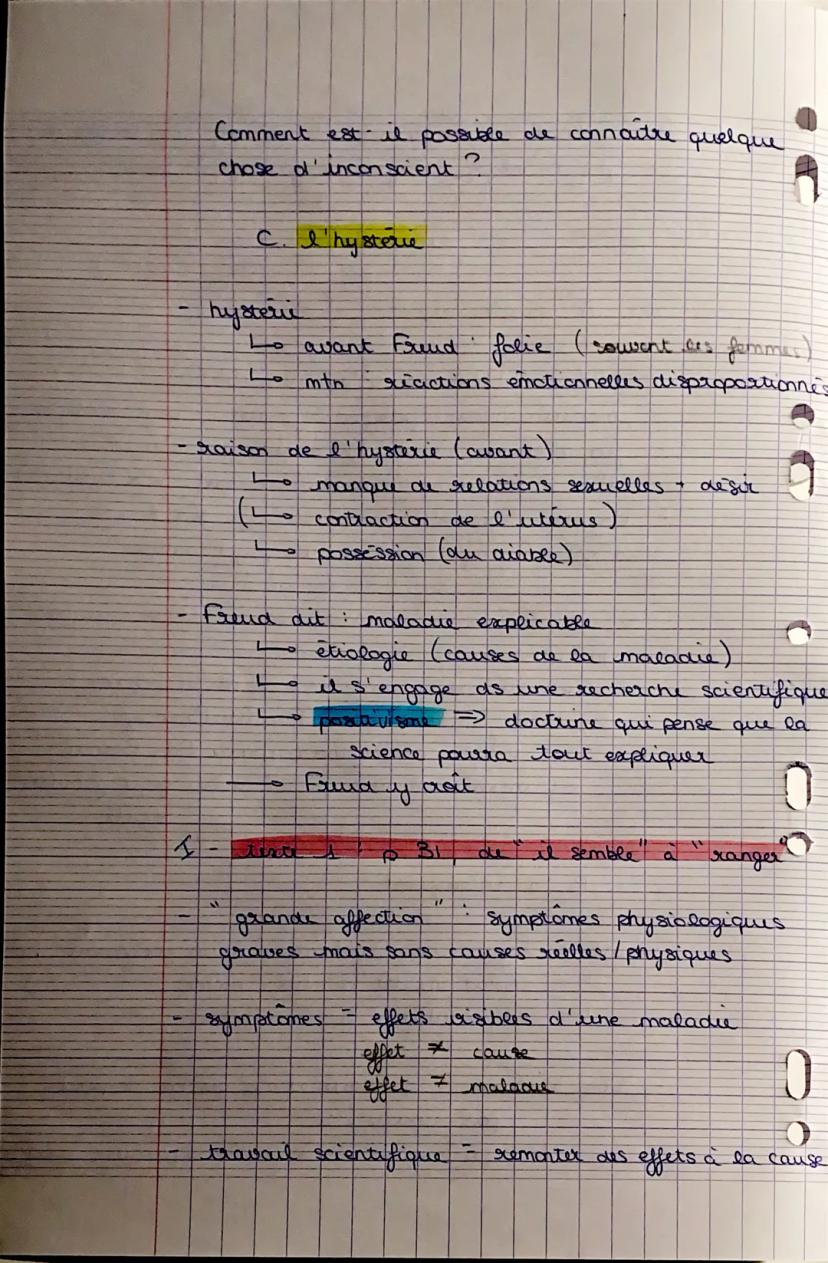 Comment est-il possible de connaître quelque
chose d'inconscient ?
C. l'hystérie
- hystérie
↳ avant Freud : folie (souvent des femmes)
↳ mtn : réactions émotionnelles disproportionnés
- raison de l'hystérie (avant)
↳ manque de relations sexuelles + désir
(↳ contraction de l'utérus)
↳ possession (du diable)
- Freud dit : maladie explicable
↳ étiologie (causes de la maladie)
↳ il s'engage ds une recherche scientifique
↳ positivisme => doctrine qui pense que la
science pourra tout expliquer
→ Freud y croît
I - texte 1 : p 31, de "il semble" à "ranger"
- "grande affection" : symptômes physiologiques
graves mais sans causes réelles / physiques
- symptômes = effets visibles d'une maladie
effet ≠ cause
effet ≠ maladie
- travail scientifique = remonter des effets à la cause